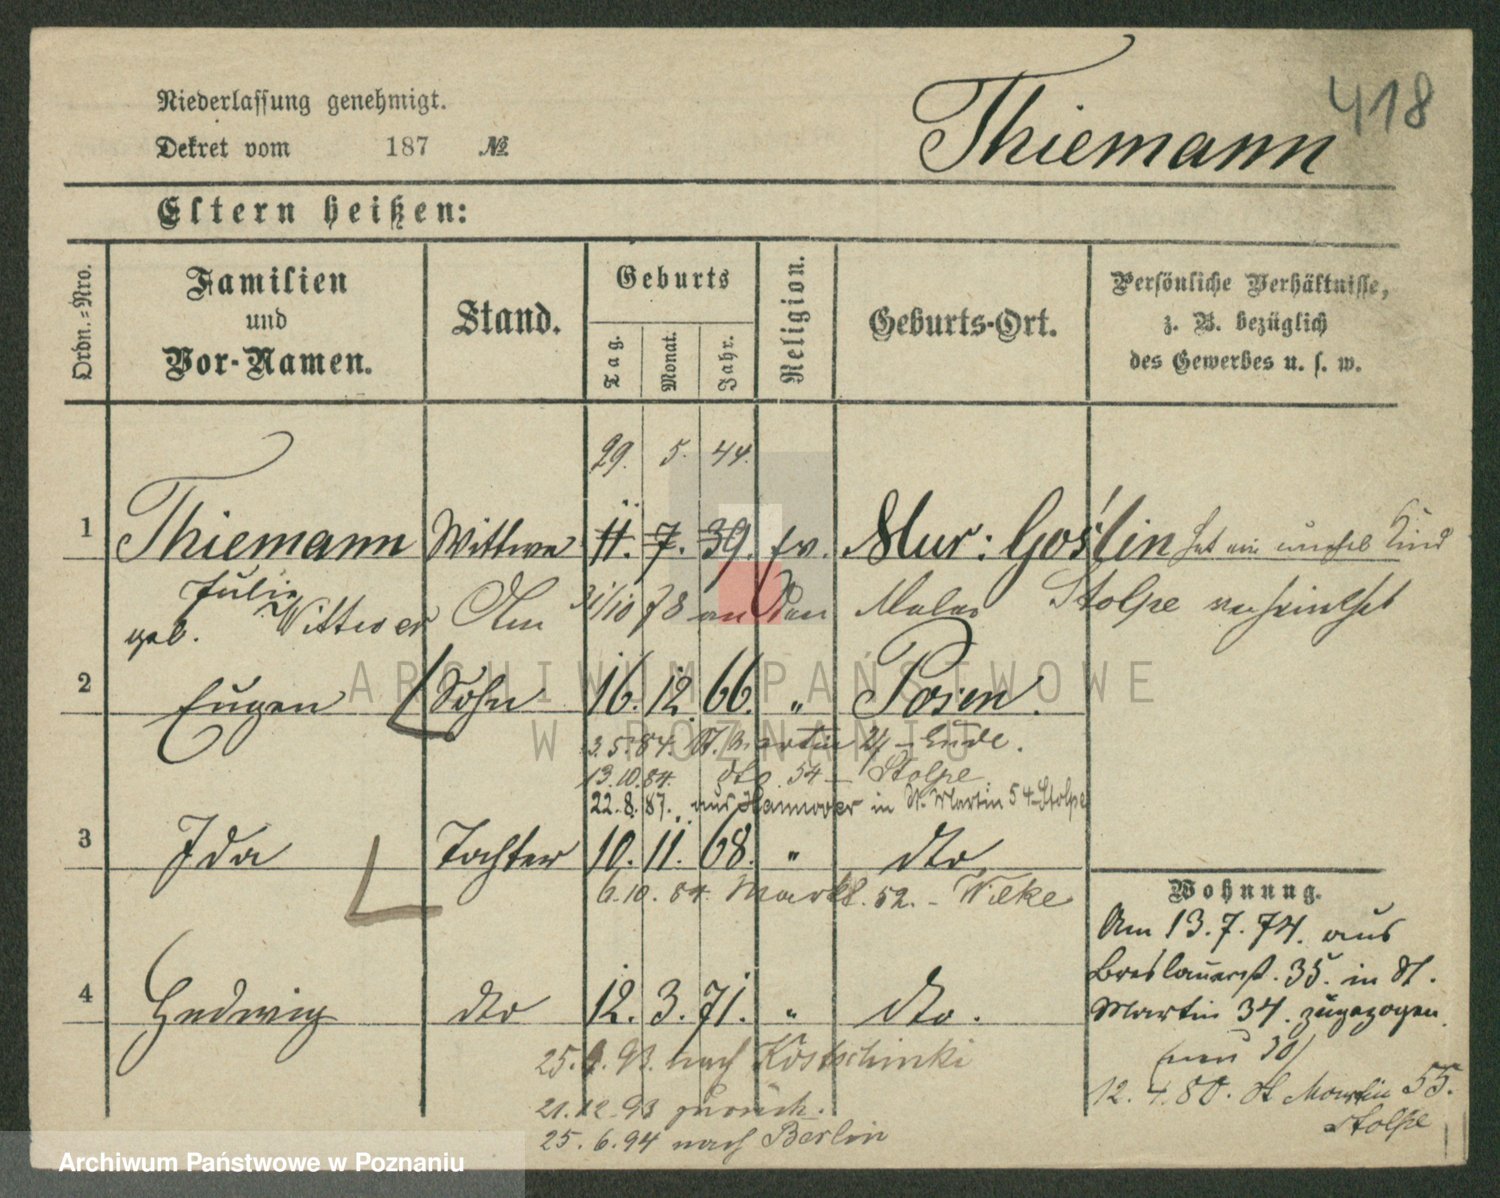 418
Niederlassung genehmigt.
Thiemann
Dekret vom 187 №
Eltern heißen:
Ordn.=Nro.
Familien
und
Vor-Namen.
Stand.
Geburts
Tag.
Monat.
Jahr.
Religion.
Geburts-Ort.
Persönliche Verhältnisse,
z. B. bezüglich
des Gewerbes u. s. w.
29. 5. 44.
1 Thiemann Wittwe 11. 7. 39. ev. Mur: Goślin hat ein unehel Kind
Julie
geb. Wittwer Am 31/10 78 an den Maler Stolpe verheirathet
2 Eugen Sohn 16. 12. 66. " Posen.
3.5.84. St. Martin 21 - Ende.
13.10.84. dto 54 - Stolpe
22.8.87. aus Hannover in St. Martin 54 - Stolpe
3 Ida Tochter 10. 11. 68. " dto
6.10.84. Markt. 52. - Wilke
Wohnung.
Am 13.7.74. aus
Breslauerst. 35. in St.
Martin 34. zugezogen
(neu 30)
12.4.80. St Martin 55.
Stolpe
4 Hedwig dto 12. 3. 71. " dto.
25. 93. nach Kostschinki
21.12.93 zurück.
25.6.94 nach Berlin
ARCHIWUM PAŃSTWOWE
W POZNANIU
Archiwum Państwowe w Poznaniu